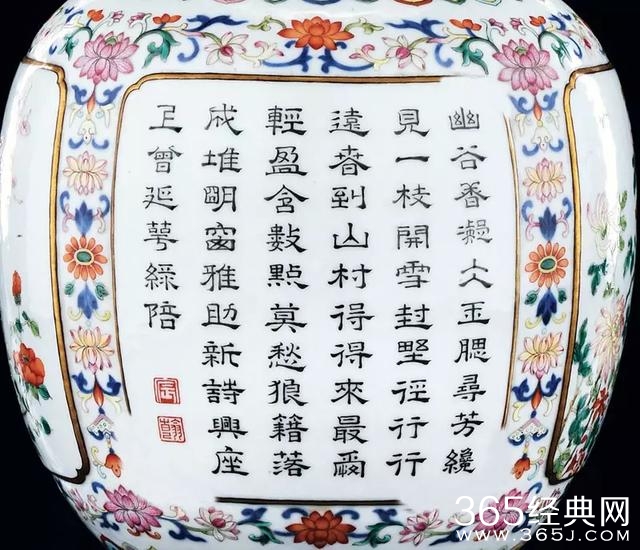 幽谷香凝大玉腮尋芳纔
見一枝開雪封野徑行行
遠春到山村得得來最愛
輕盈含數點莫愁狼籍落
成堆明窗雅助新詩興座
上曾延萼綠陪
宸
翰
365经典网
www.365J.com